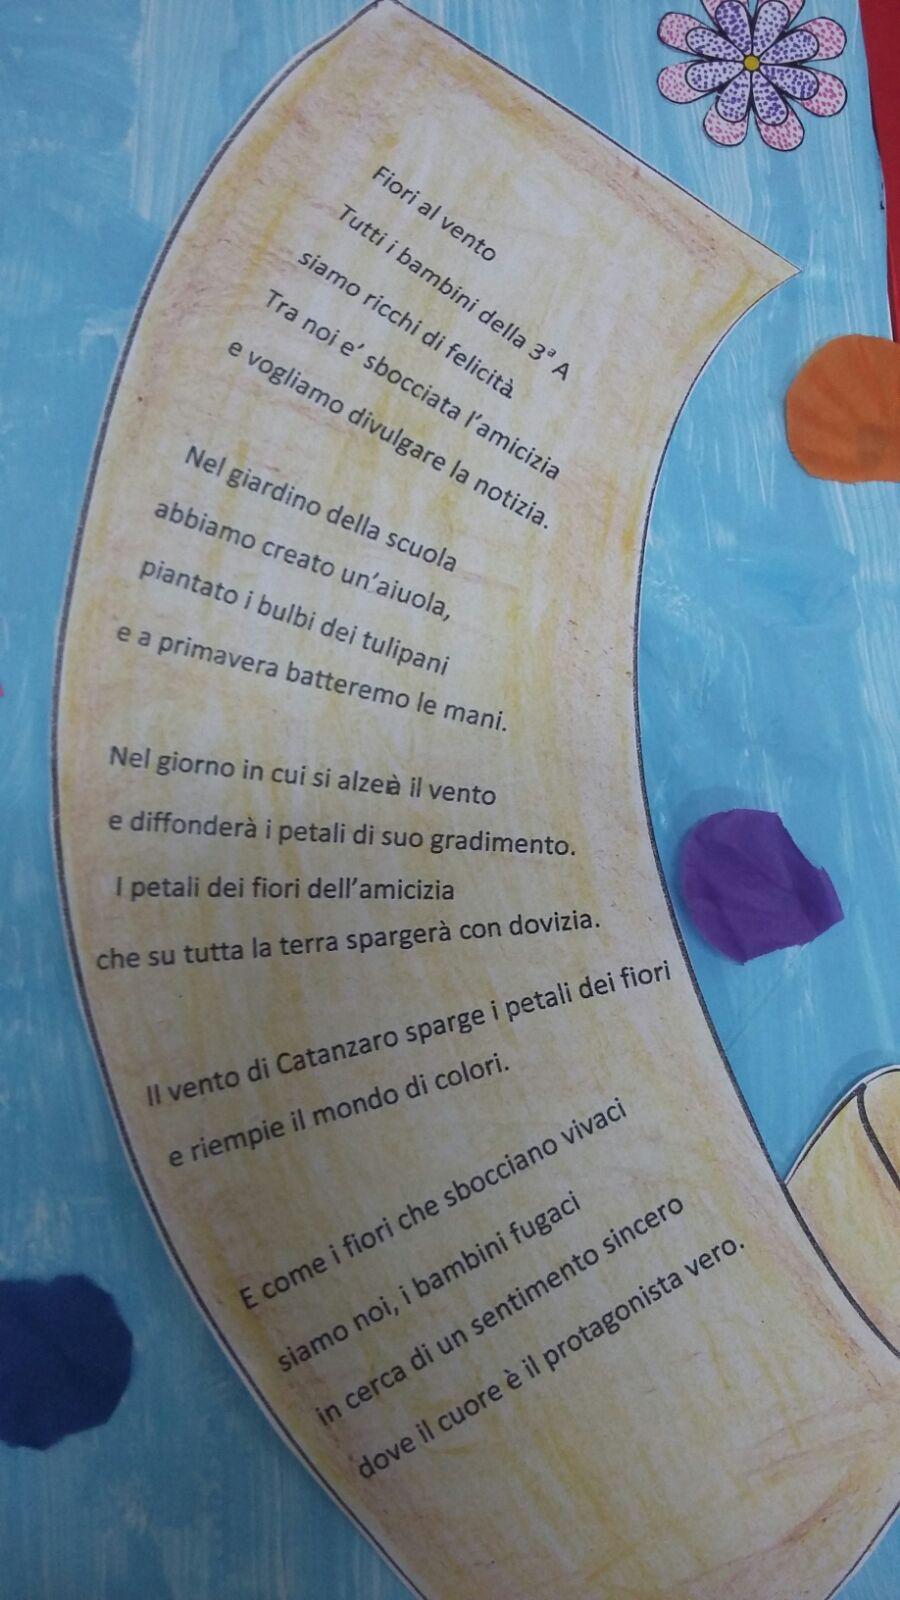 Fiori al vento
Tutti i bambini della 3ª A
siamo ricchi di felicità.
Tra noi e' sbocciata l'amicizia
e vogliamo divulgare la notizia.
Nel giardino della scuola
abbiamo creato un'aiuola,
piantato i bulbi dei tulipani
e a primavera batteremo le mani.
Nel giorno in cui si alzerà il vento
e diffonderà i petali di suo gradimento.
I petali dei fiori dell'amicizia
che su tutta la terra spargerà con dovizia.
Il vento di Catanzaro sparge i petali dei fiori
e riempie il mondo di colori.
E come i fiori che sbocciano vivaci
siamo noi, i bambini fugaci
in cerca di un sentimento sincero
dove il cuore è il protagonista vero.